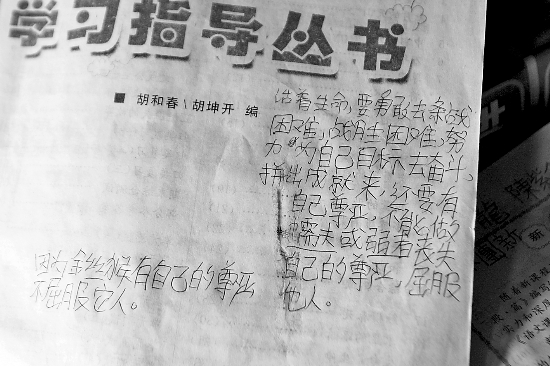 学习指导丛书
■ 胡和春\胡坤开 编
活着生命,要勇敢去条战
困难,战胜困难,努
力为自己目标去奋斗,
拼出成就来,还要有
自己尊严,不能做
懦夫或弱者丧失
自己的尊严,屈服
他人。
因为金丝猴有自己的尊严
不屈服它人。
新
随着新课程